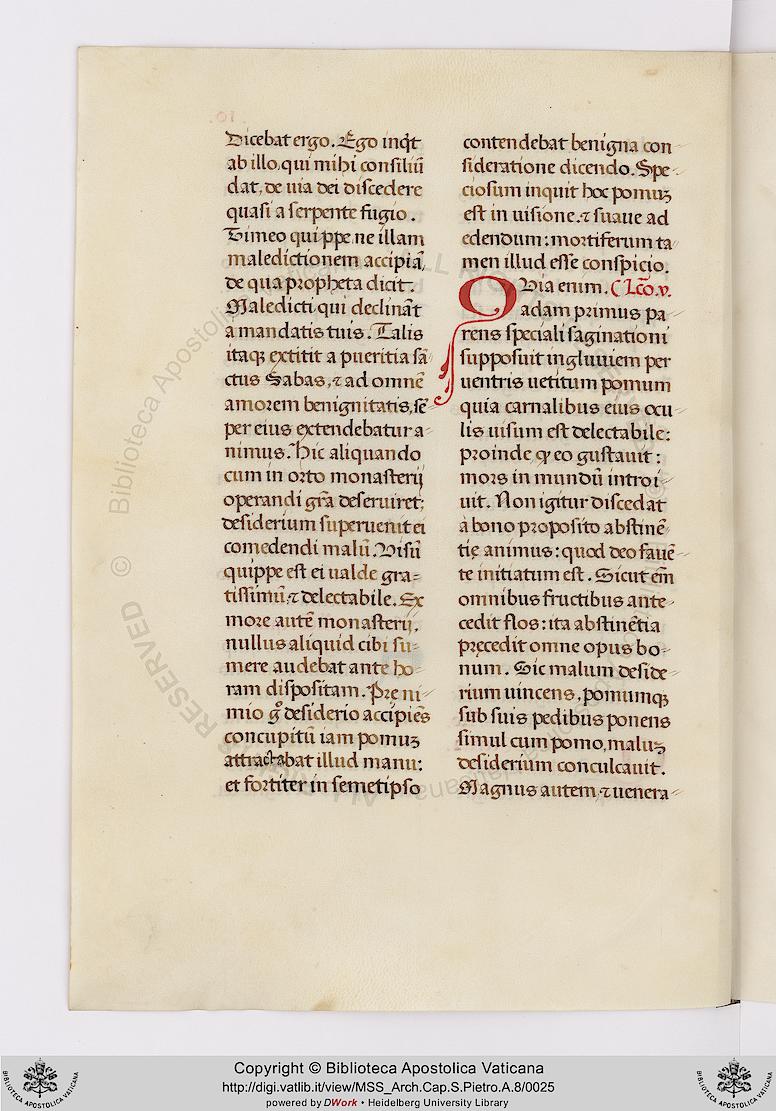 Dicebat ergo. Ego inqͥt
ab illo, qui mihi consiliū
dat, de uia dei discedere
quasi a serpente fugio.
Timeo quippe ne illam
maledictionem accipiā,
de qua propheta dicit.
Maledicti qui declināt
a mandatis tuis. Talis
itaqꝫ extitit a pueritia sā
ctus Sabas, ⁊ ad omnē
amorem benignitatis, sē-
per eius extendebatur a-
nimus. Hic aliquando
cum in orto monasterij
operandi grā deseruiret;
desiderium superuenit ei
comedendi malū. Visū
quippe est ei ualde gra-
tissimū, ⁊ delectabile. Ex
more autē monasterij,
nullus aliquid cibi su-
mere audebat ante ho-
ram dispositam. Prę ni-
mio gͦ desiderio accipiēs
concupitū iam pomuꝫ
attractabat illud manu:
et fortiter in semetipso
contendebat benigna con
sideratione dicendo. Spe-
ciosum inquit hoc pomuꝫ
est in uisione, ⁊ suaue ad
edendum: mortiferum ta-
men illud esse conspicio.
QVia enim. Lcō.v.
adam primus pa-
rens speciali saginationi
supposuit ingluuiem per
uentris uetitum pomum
quia carnalibus eius ocu-
lis uisum est delectabile:
proinde ꝙ eo gustauit:
mors in mundū introi-
uit. Non igitur discedat
à bono proposito abstinē-
tię animus: quod deo fauē-
te initiatum est. Sicut em̄
omnibus fructibus ante-
cedit flos: ita abstinētia
pręcedit omne opus bo-
num. Sic malum deside-
rium uincens, pomumqꝫ
sub suis pedibus ponens
simul cum pomo, maluꝫ
desiderium conculcauit.
Magnus autem ⁊ uenera-
© Biblioteca Apostolica Vaticana ALL RIGHTS RESERVED
BIBLIOTECA APOSTOLICA VATICANA
Copyright © Biblioteca Apostolica Vaticana
http://digi.vatlib.it/view/MSS_Arch.Cap.S.Pietro.A.8/0025
powered by DWork • Heidelberg University Library
BIBLIOTECA APOSTOLICA VATICANA